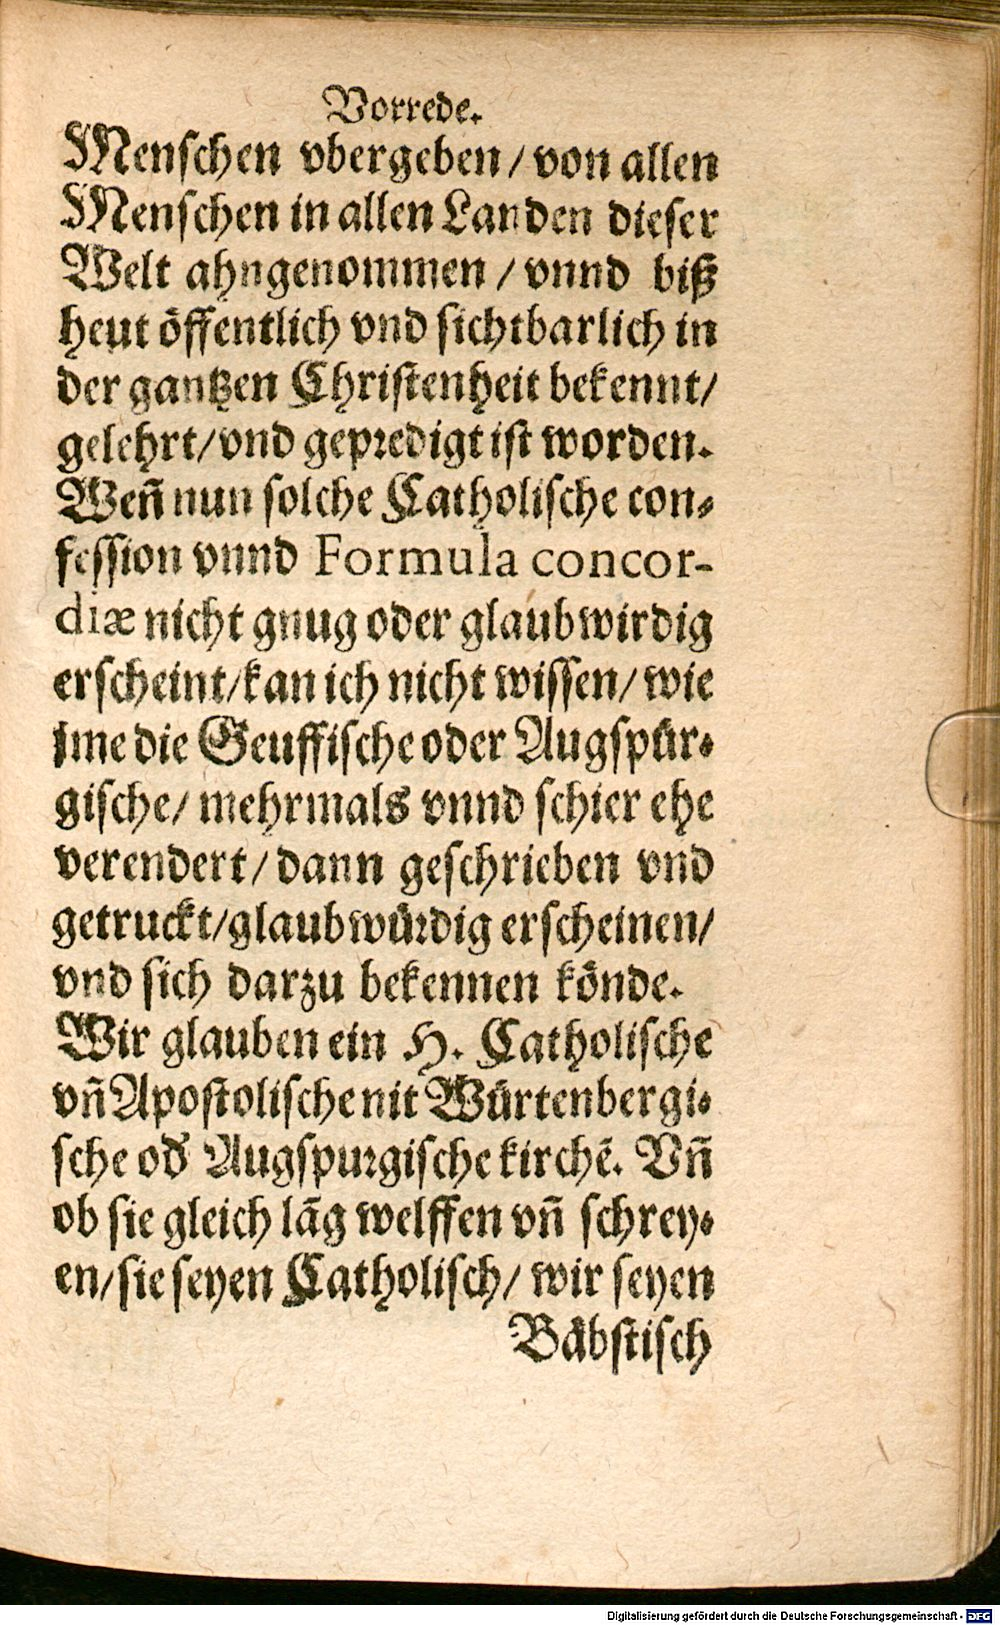 Vorrede.
Menschen vbergeben / von allen
Menschen in allen Landen dieser
Welt ahngenommen / vnnd biß
heut öffentlich vnd sichtbarlich in
der gantzen Christenheit bekennt /
gelehrt / vnd gepredigt ist worden.
Weñ nun solche Catholische con⸗
fession vnnd Formula concor-
diæ nicht gnug oder glaubwirdig
erscheint / kan ich nicht wissen / wie
jme die Geuffische oder Augspür⸗
gische / mehrmals vnnd schier ehe
verendert / dann geschrieben vnd
getruckt / glaubwürdig erscheinen /
vnd sich darzu bekennen könde.
Wir glauben ein H. Catholische
vñ Apostolische nit Würtenbergi⸗
sche od Augspurgische kirchē. Vñ
ob sie gleich lãg welffen vñ schrey⸗
en / sie seyen Catholisch / wir seyen
Bäbstisch
Digitalisierung gefördert durch die Deutsche Forschungsgemeinschaft - DFG